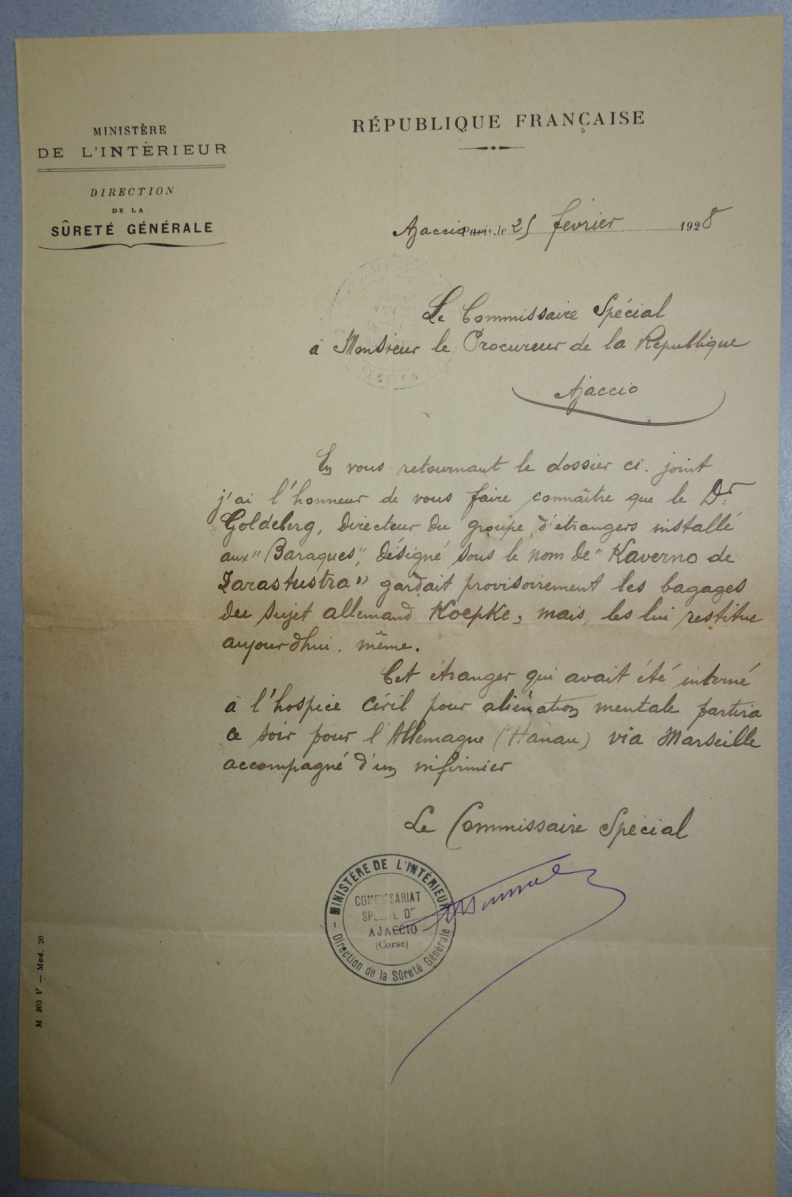 MINISTÈRE
DE L'INTÉRIEUR
DIRECTION
DE LA
SÛRETÉ GÉNÉRALE
RÉPUBLIQUE FRANÇAISE
Ajaccio Paris, le 25 février 1928
Le Commissaire Spécial
à Monsieur le Procureur de la République
Ajaccio
En vous retournant le dossier ci-joint
j'ai l'honneur de vous faire connaître que le Dr
Goldeberg, Directeur du groupe d'étrangers installé
aux "Baraques", désigné sous le nom de "Kaverno de
Zarastustra" gardait provisoirement les bagages
du sujet allemand Koepke, mais, les lui restitue
aujourd'hui même.
Cet étranger qui avait été interné
à l'hospice Civil pour aliénation mentale partira
ce soir pour l'Allemagne (Hanau) via Marseille
accompagné d'un infirmier
Le Commissaire Spécial
MINISTÈRE DE L'INTÉRIEUR
COMMISSARIAT
SPÉCIAL DE
AJACCIO
(Corse)
Direction de la Sûreté Générale
M 303 V — Mod. 20